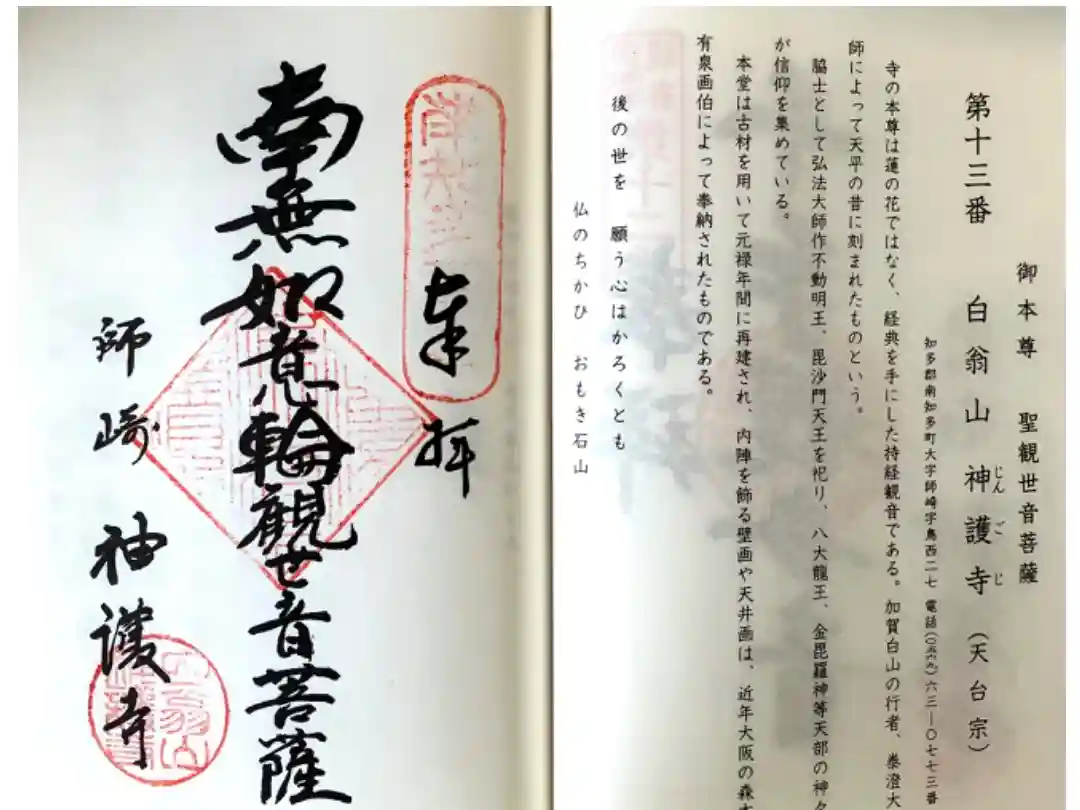 御本尊 聖観世音菩薩
第十三番 白翁山 神護寺（天台宗）
じん ご じ
知多郡南知多町大字師崎字鳥西二七 電話（〇五六九）六三—〇七七三番
寺の本尊は蓮の花ではなく、経典を手にした持経観音である。加賀白山の行者、泰澄大
師によって天平の昔に刻まれたものという。
脇士として弘法大師作不動明王、毘沙門天王を祀り、八大龍王、金毘羅神等天部の神々
が信仰を集めている。
本堂は古材を用いて元禄年間に再建され、内陣を飾る壁画や天井画は、近年大阪の森本
有泉画伯によって奉納されたものである。
後の世を 願う心はかろくとも
仏のちかひ おもき石山
奉拝
南無如意輪観世音菩薩
師崎 神護寺